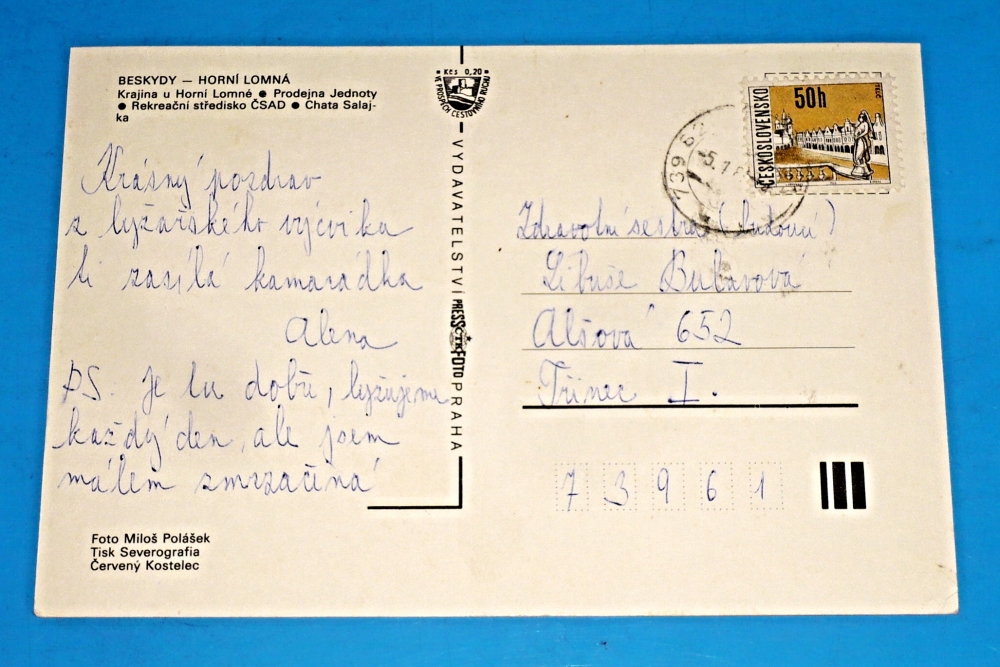 BESKYDY — HORNÍ LOMNÁ
Krajina u Horní Lomné ● Prodejna Jednoty
● Rekreační středisko ČSAD ● Chata Salaj-
ka
Krásný pozdrav
z lyžařského výcviku
ti zasílá kamarádka
Alena
PS. Je tu dobře, lyžujeme
každý den, ale jsem
málem zmrzačená
Foto Miloš Polášek
Tisk Severografia
Červený Kostelec
Kčs 0,20
VE PROSPĚCH CESTOVNÍHO RUCHU
VYDAVATELSTVÍ PRESSFOTO PRAHA
ČTK
ČESKOSLOVENSKO
50h
TELČ
739 6
5.1.8
Zdravotní sestra
Libuše Bubavová
Alšova 652
Třinec I.
73961